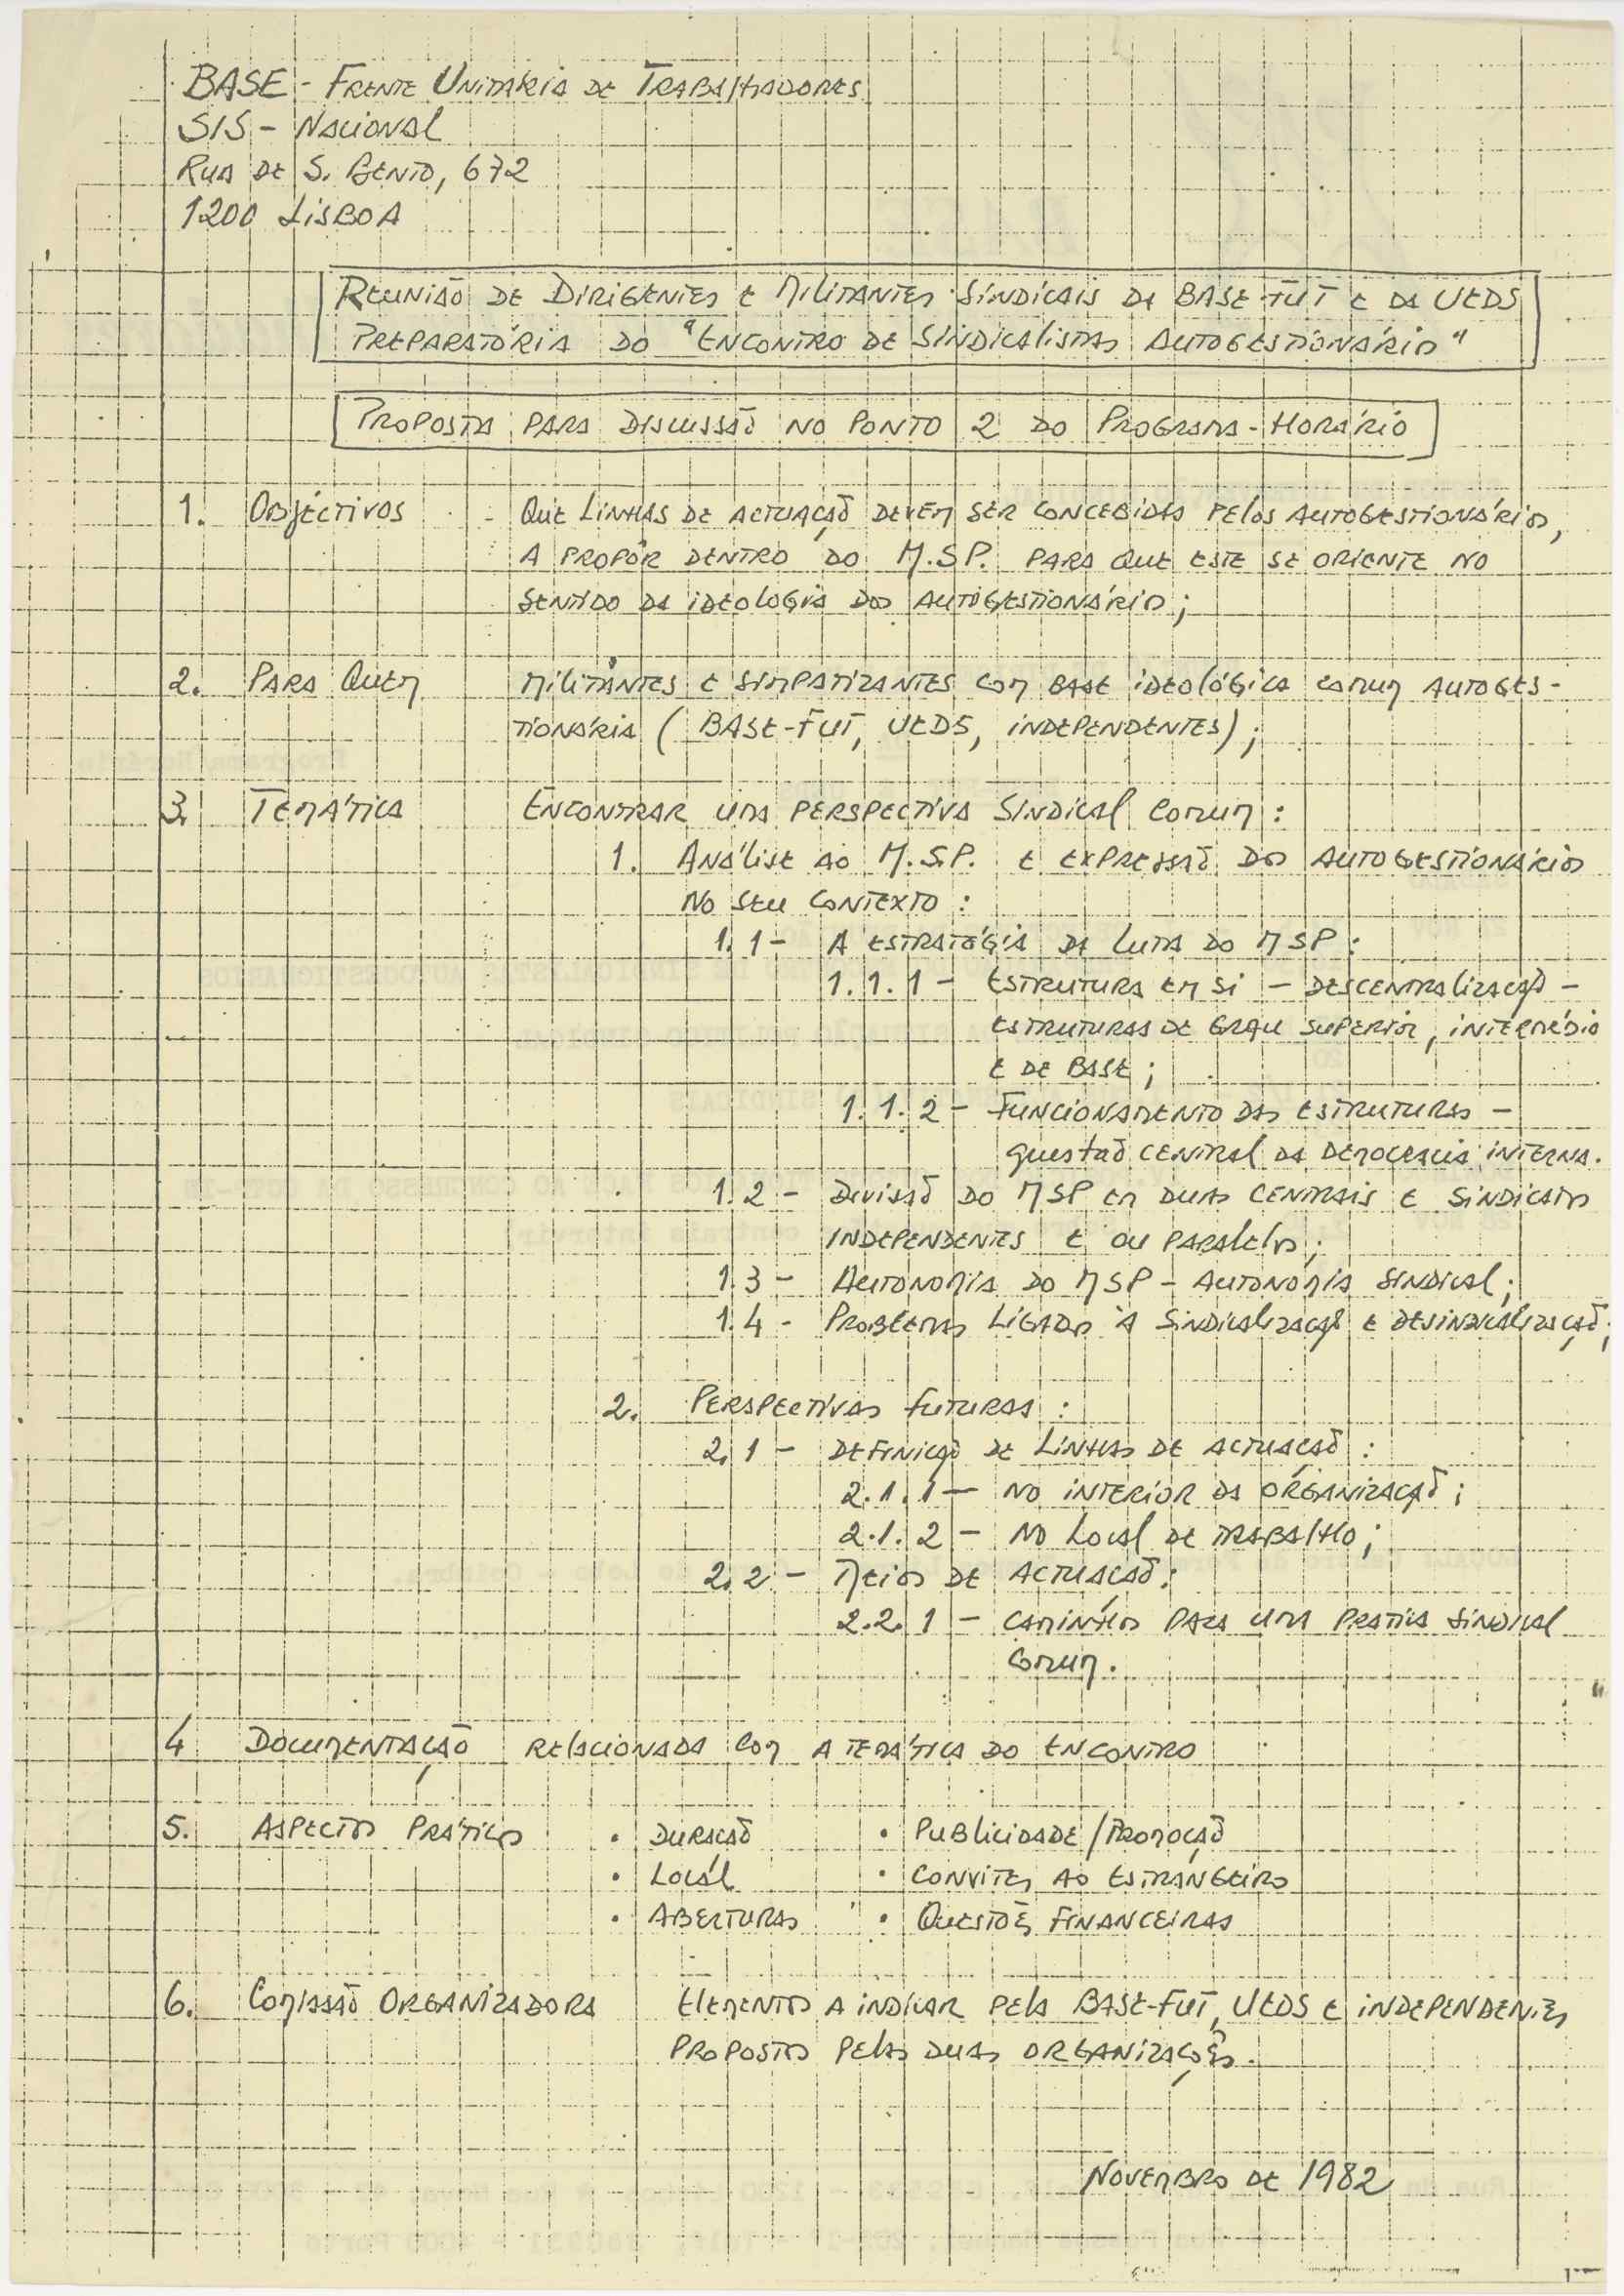 BASE - FRENTE UNITÁRIA DE TRABALHADORES
SIS - NACIONAL
RUA DE S. BENTO, 672
1200 LISBOA
REUNIÃO DE DIRIGENTES E MILITANTES SINDICAIS DA BASE-FUT E DA UEDS
PREPARATÓRIA DO "ENCONTRO DE SINDICALISTAS AUTOGESTIONÁRIOS"
PROPOSTA PARA DISCUSSÃO NO PONTO 2 DO PROGRAMA-HORÁRIO
1. OBJÉCTIVOS - QUE LINHAS DE ACTUAÇÃO DEVEM SER CONCEBIDAS PELOS AUTOGESTIONÁRIOS,
A PROPÔR DENTRO DO M.SP. PARA QUE ESTE SE ORIENTE NO
SENTIDO DA IDEOLOGIA DOS AUTOGESTIONÁRIOS;
2. PARA QUEM MILITANTES E SIMPATIZANTES COM BASE IDEOLÓGICA COMUM AUTOGES-
TIONÁRIA (BASE-FUT, UEDS, INDEPENDENTES);
3. TEMÁTICA ENCONTRAR UMA PERSPECTIVA SINDICAL COMUM :
1. ANÁLISE AO M.S.P. E EXPRESSÃO DOS AUTOGESTIONÁRIOS
NO SEU CONTEXTO :
1.1 - A ESTRATÉGIA DA LUTA DO MSP :
1.1.1 - ESTRUTURA EM SI - DESCENTRALIZAÇÃO -
ESTRUTURAS DE GRAU SUPERIOR, INTERMÉDIO
E DE BASE;
1.1.2 - FUNCIONAMENTO DAS ESTRUTURAS -
QUESTÃO CENTRAL DA DEMOCRACIA INTERNA.
1.2 - DIVISÃO DO MSP EM DUAS CENTRAIS E SINDICATOS
INDEPENDENTES E OU PARALELOS;
1.3 - AUTONOMIA DO MSP - AUTONOMIA SINDICAL;
1.4 - PROBLEMAS LIGADOS À SINDICALIZAÇÃO E DESINDICALIZAÇÃO;
2. PERSPECTIVAS FUTURAS :
2.1 - DEFINIÇÃO DE LINHAS DE ACTUAÇÃO :
2.1.1 - NO INTERIOR DA ORGANIZAÇÃO;
2.1.2 - NO LOCAL DE TRABALHO;
2.2 - MEIOS DE ACTUAÇÃO:
2.2.1 - CAMINHOS PARA UMA PRATICA SINDICAL
COMUM.
4 DOCUMENTAÇÃO RELACIONADA COM A TEMÁTICA DO ENCONTRO
5. ASPECTOS PRÁTICOS • DURAÇÃO • PUBLICIDADE/PROMOÇÃO
• LOCAL • CONVITES AO ESTRANGEIRO
• ABERTURAS • QUESTÕES FINANCEIRAS
6. COMISSÃO ORGANIZADORA ELEMENTOS A INDICAR PELA BASE-FUT, UEDS E INDEPENDENTES
PROPOSTOS PELAS DUAS ORGANIZAÇÕES.
NOVEMBRO DE 1982